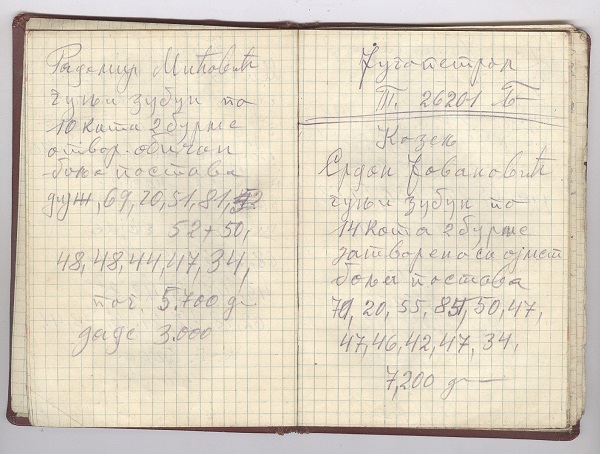 Радомир Мићовић
гуњи зубун по
10 ката 2 бурме
отвор. обичан
боља постава
дуж, 69, 70, 51, 81,
52 + 50,
48, 48, 44, 47, 34,
пог. 5.700 д
даде 3.000
Југопетрол
Т. 26201
Козељ
Срдан Јовановић
гуњи зубун по
14 ката 2 бурме
затворено са
боља постава
20, 55, 50, 47,
47, 46, 42, 47, 34,
7,200 д